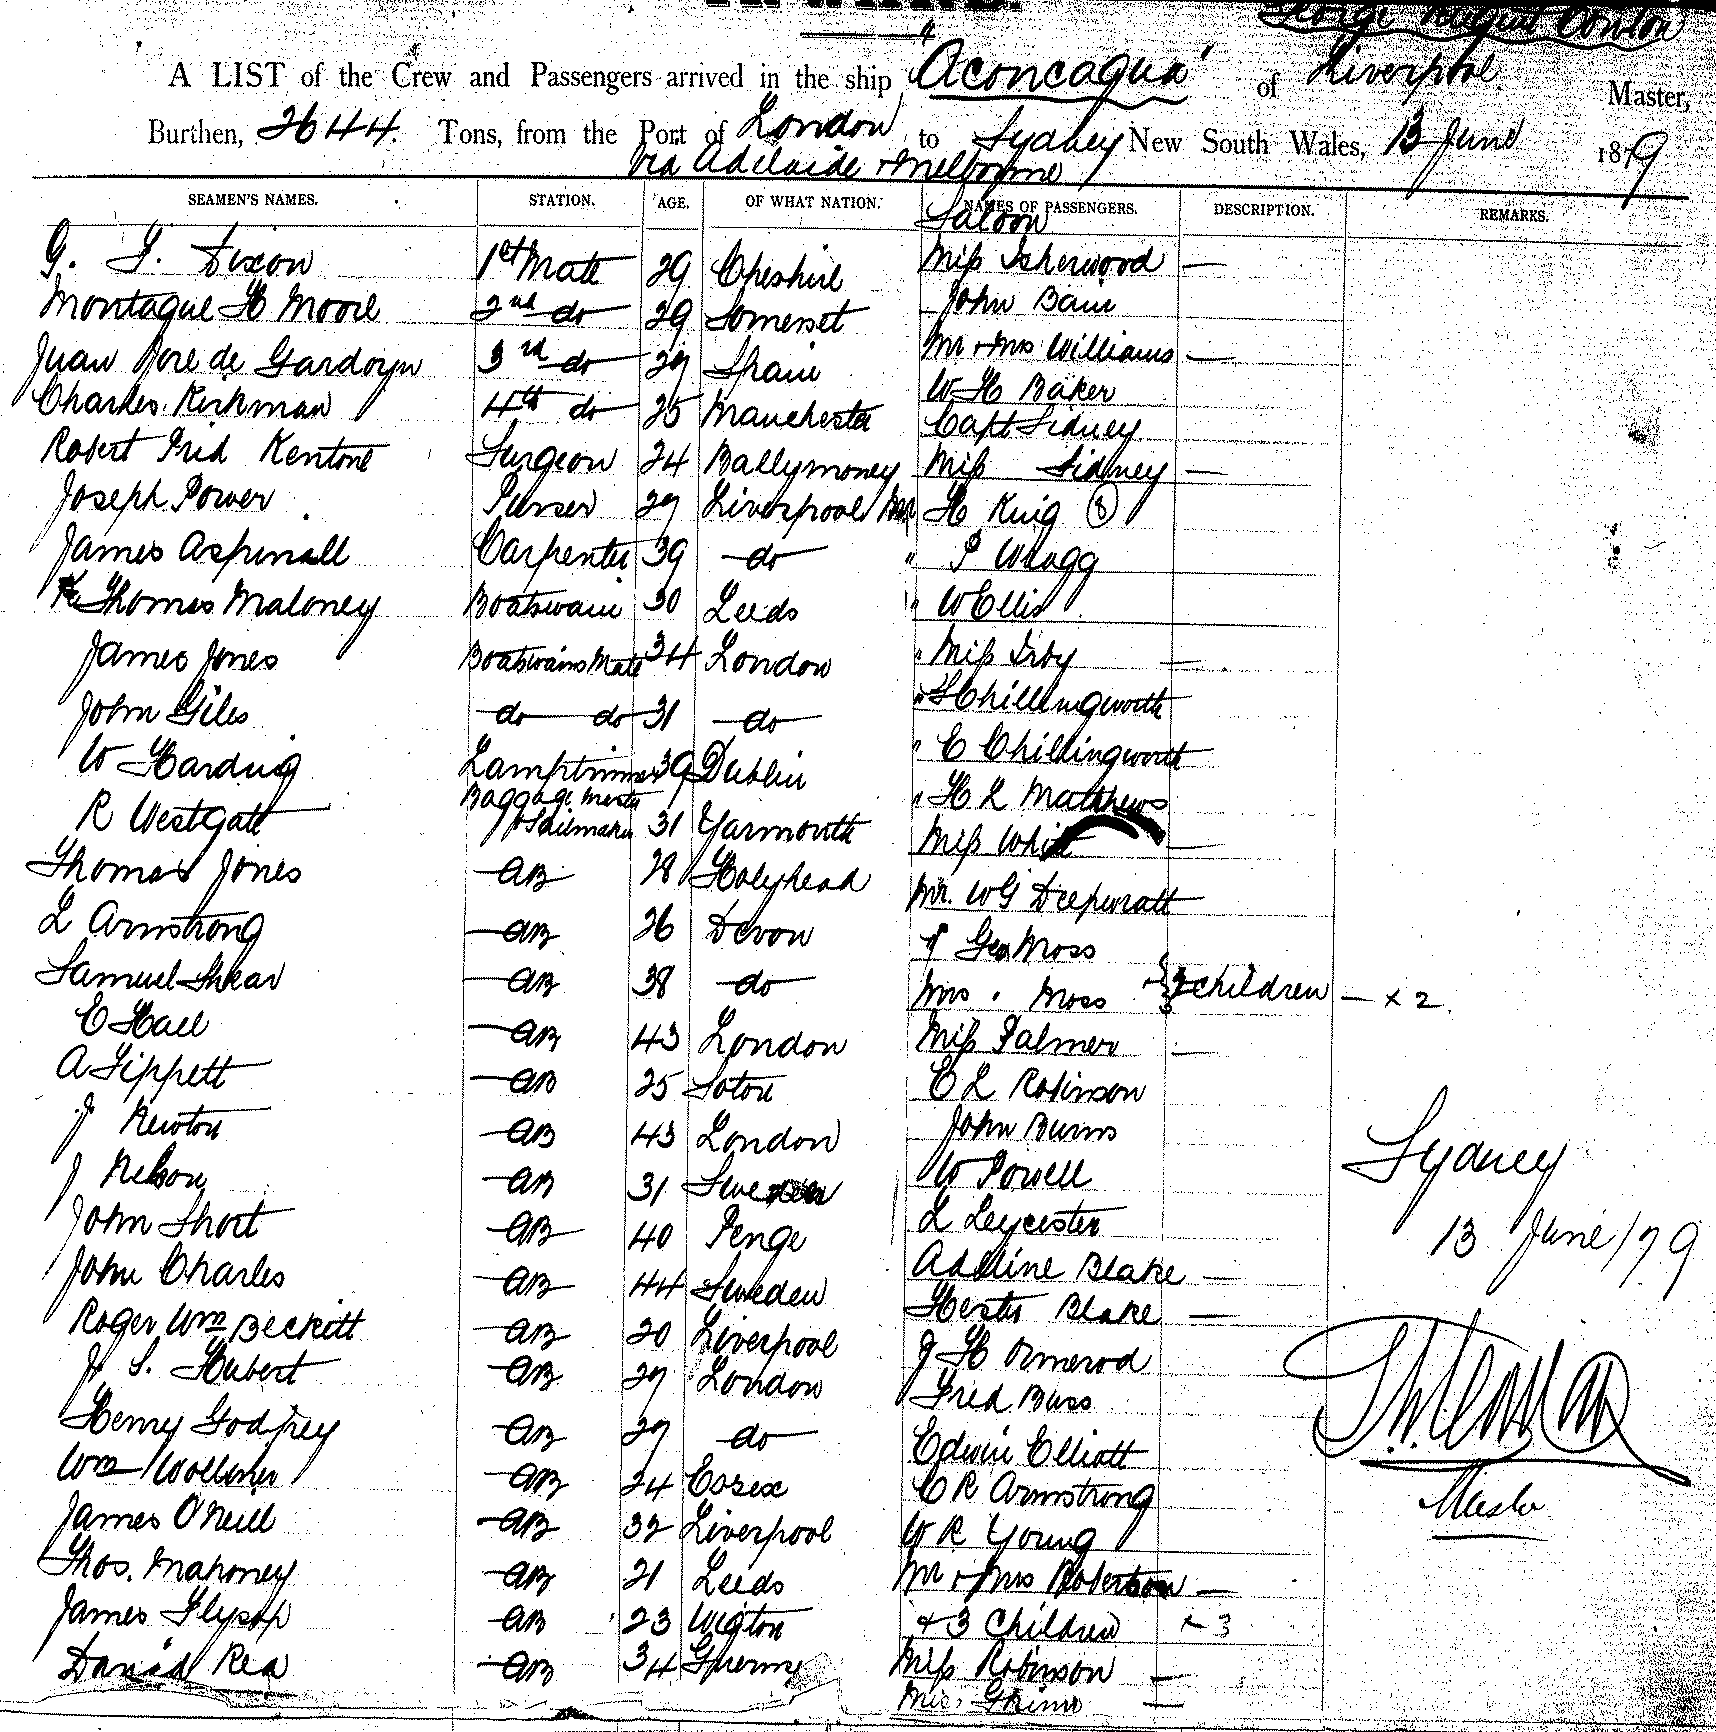 A LIST of the Crew and Passengers arrived in the ship "Aconcagua" of Liverpool Master,
Burthen, 2644. Tons, from the Port of London to Sydney New South Wales, 13 June 1879
via Adelaide & Melbourne
SEAMEN'S NAMES. STATION. AGE. OF WHAT NATION. NAMES OF PASSENGERS. DESCRIPTION. REMARKS.
Saloon
G. Dixon 1st Mate 29 Cheshire Miss Isherwood —
Montague H Moore 2nd do 29 Somerset John Bain
Juan Jose de 3rd do 29 Spain Mr & Mrs Williams —
Charles Kirkman 4th do 25 Manchester W H Baker
Capt Sidney
Robert Fred Kentone Surgeon 24 Ballymoney Miss Sidney —
Joseph Power Purser 29 Liverpool Mr H King (8)
James Aspinall Carpenter 39 do " P Wragg
Thomas Maloney Boatswain 30 Leeds " W Ellis
James Jones Boatswains Mate 34 London " Miss Irby —
John Giles do do 31 do " H Chillingworth
W Harding Lamptrimmer 39 Dublin " E Chillingworth
R Westgate Baggage Master & Sailmaker 31 Yarmouth " H L Matthews
Miss White —
Thomas Jones AB 28 Holyhead Mr. W G
L Armstrong AB 26 Devon " Geo Moss
Samuel AB 38 do Mrs. Moss children — x 2.
E Hall AB 43 London Miss Palmer —
A Tippett AB 25 Soton C L Robinson
J Newton AB 43 London John Burns
J Nelson AB 31 Sweden W Powell
John Short AB 40 Penge L Leycester
John Charles AB 44 Sweden Adeline Blake —
Roger Wm Beckett AB 20 Liverpool Hester Blake —
J. S. Hubert AB 29 London J H Ormerod
Fred Buss
Henry Godfrey AB 29 do Edwin Elliott
Wm AB 24 Essex C R Armstrong
James O'Neill AB 32 Liverpool W R Young
Thos. Mahoney AB 21 Leeds Mr & Mrs Robertson —
James AB 23 Wigton & 3 Children x 3
David Rea AB 34 Miss Robinson —
Sydney
13 June/79
Master